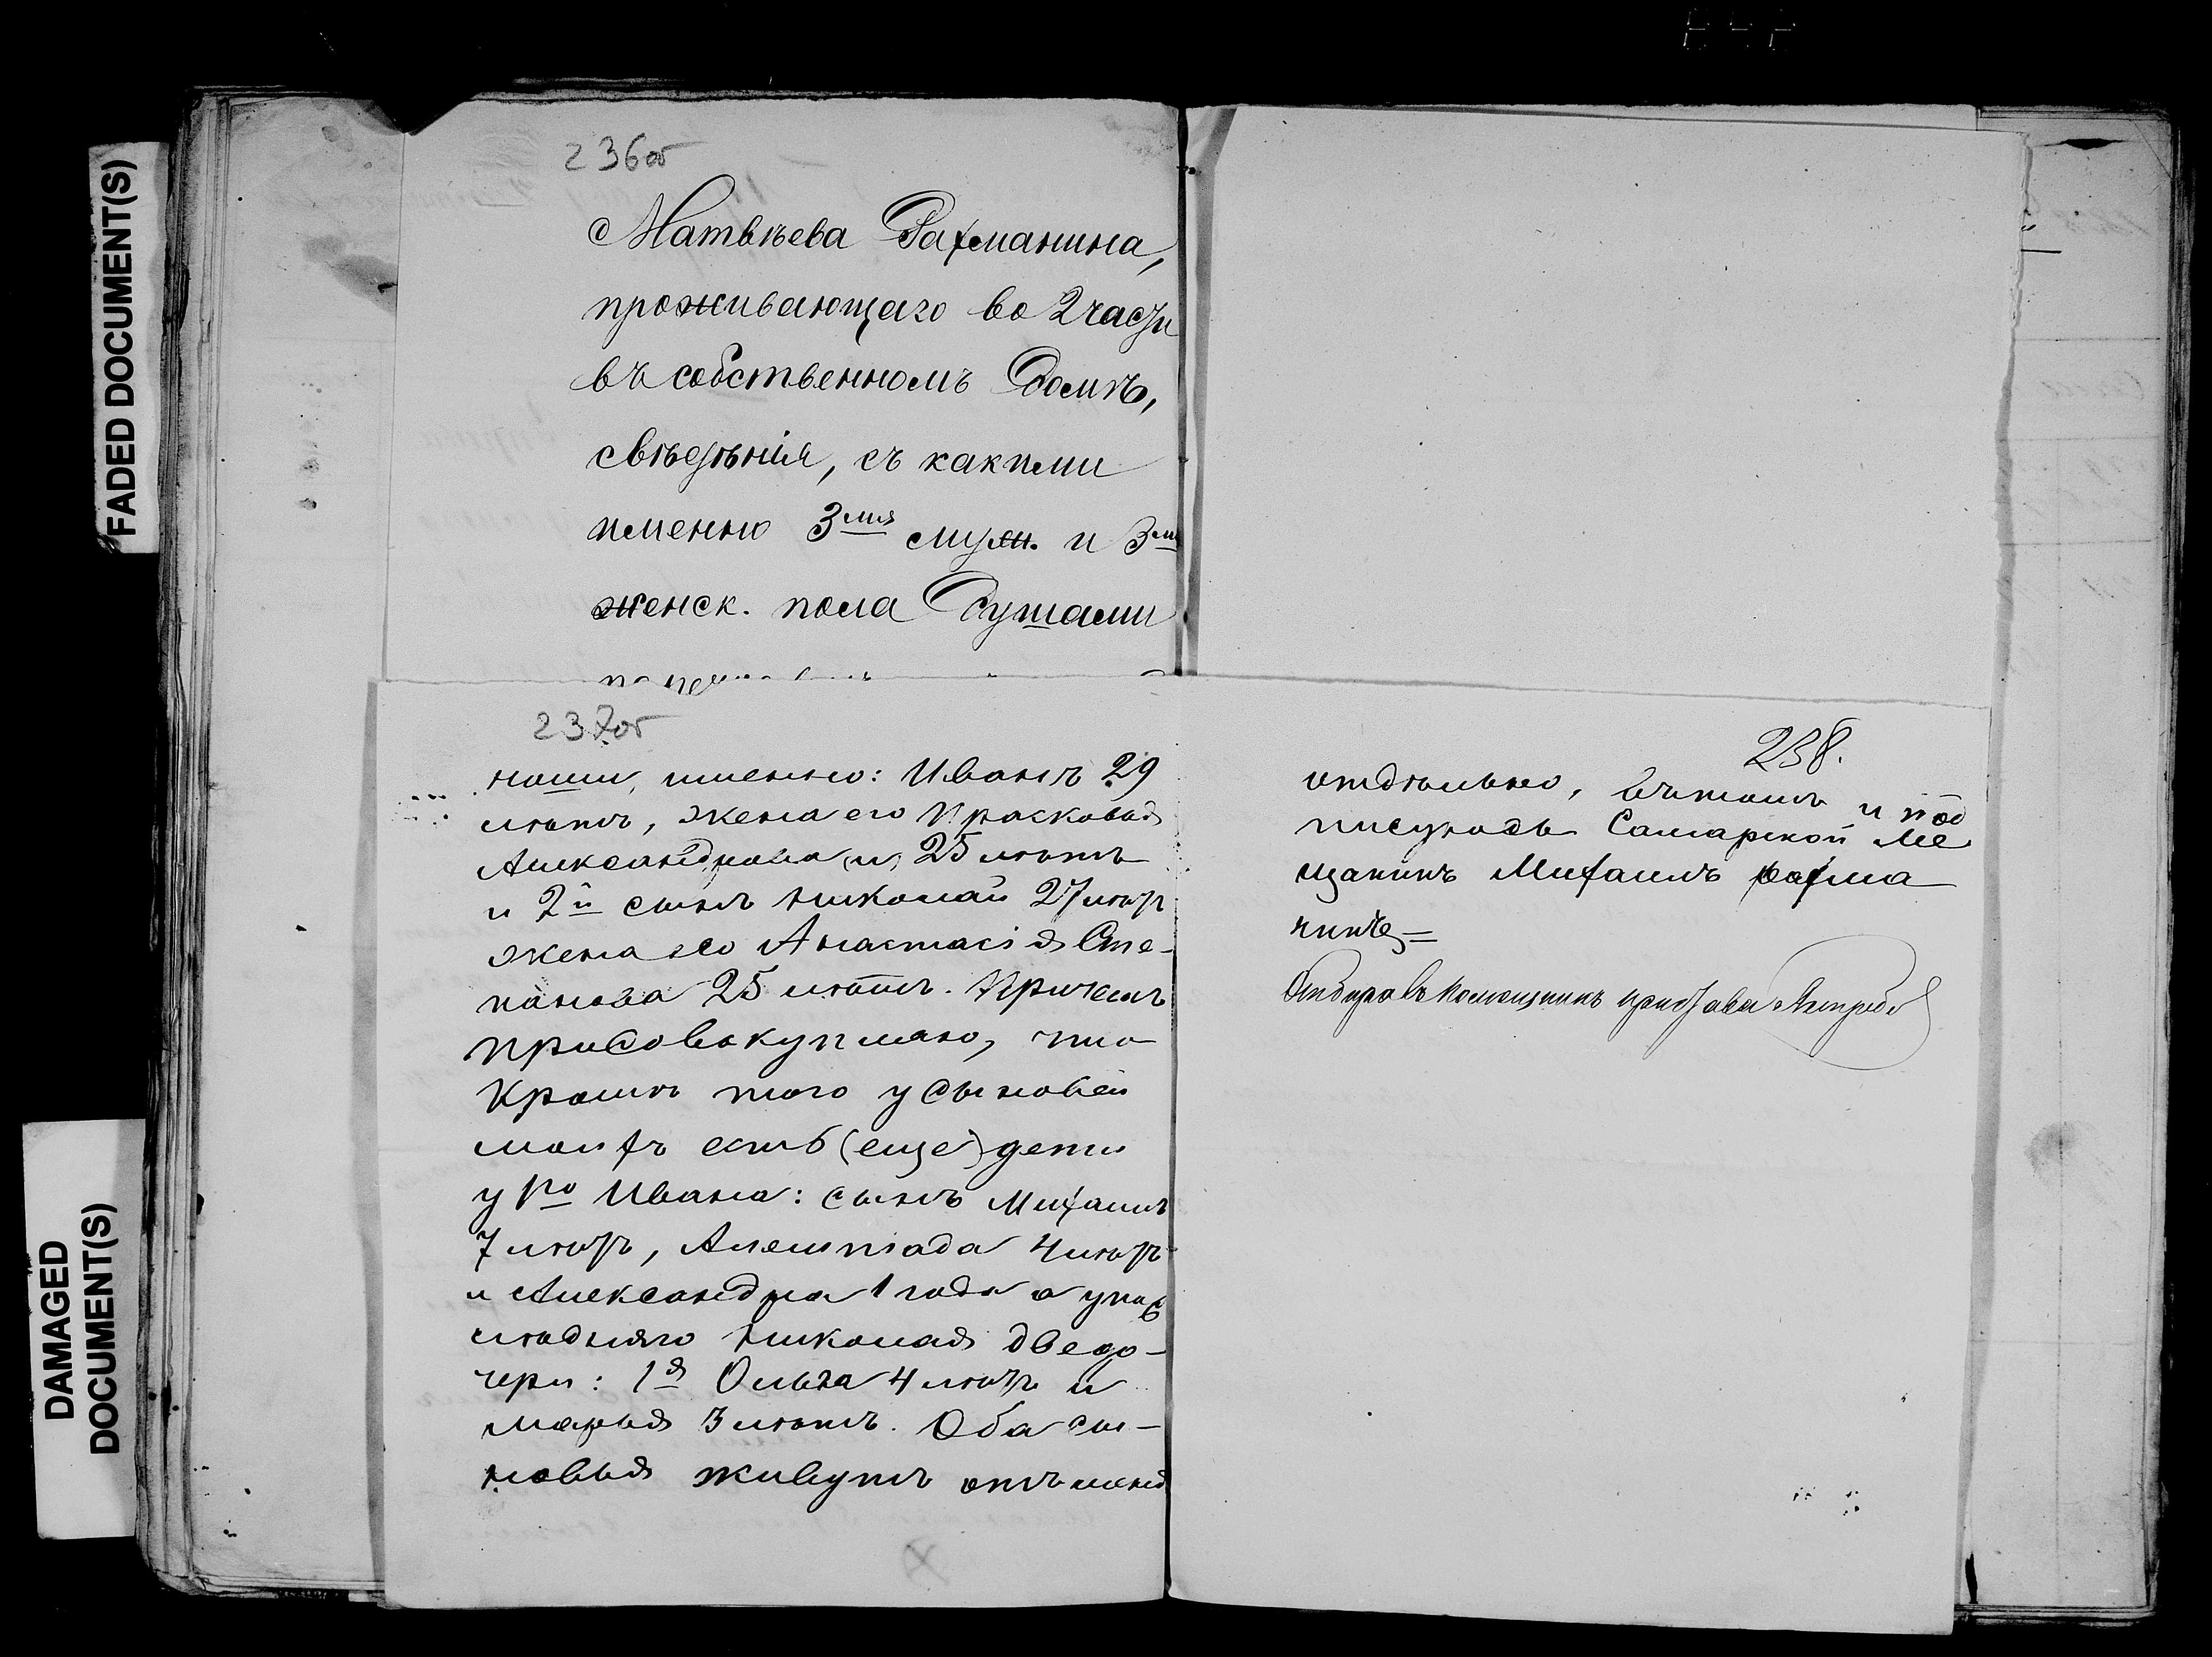 FADED DOCUMENT(S)
DAMAGED
DOCUMENT(S)
236об
Матвѣева Рахманина,
проживающаго во 2 части
въ собственномъ домѣ,
свѣдѣнія, съ какими
именно 3мя муж. и 3мя
женск. пола душами
237об
ними, именно: Иванъ 29
лѣтъ, жена его Прасковья
Александрова 25 лѣтъ
и 2й сынъ Николай 27 лѣтъ
жена его Анастасія Сте-
панова 25 лѣтъ. Причемъ
присовокупляю, что
кромѣ того у сыновей
моихъ есть (еще) дети
у 1го Ивана: сынъ Михаилъ
7 лѣтъ, 4 лѣтъ
и Александра 1 года а у пос
лѣдняго Николая две до-
чери: 1я Ольга 4 лѣтъ и
Марья 3 лѣтъ. Оба сы-
новья живутъ отъ меня
238.
отдѣльно, въ томъ и под
писуюсь Самарской Ме
щанинъ Михаилъ Рахма
нинъ=
Отбиралъ помощникъ пристава